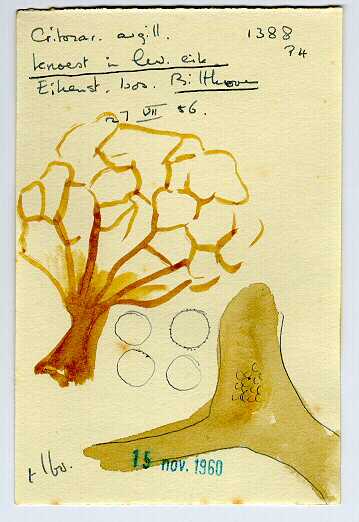 Cribrar. argill. 1388
knoest in lev. eik
Eikenst. bos. Bilthoven
27 VII 56.
15 nov. 1960